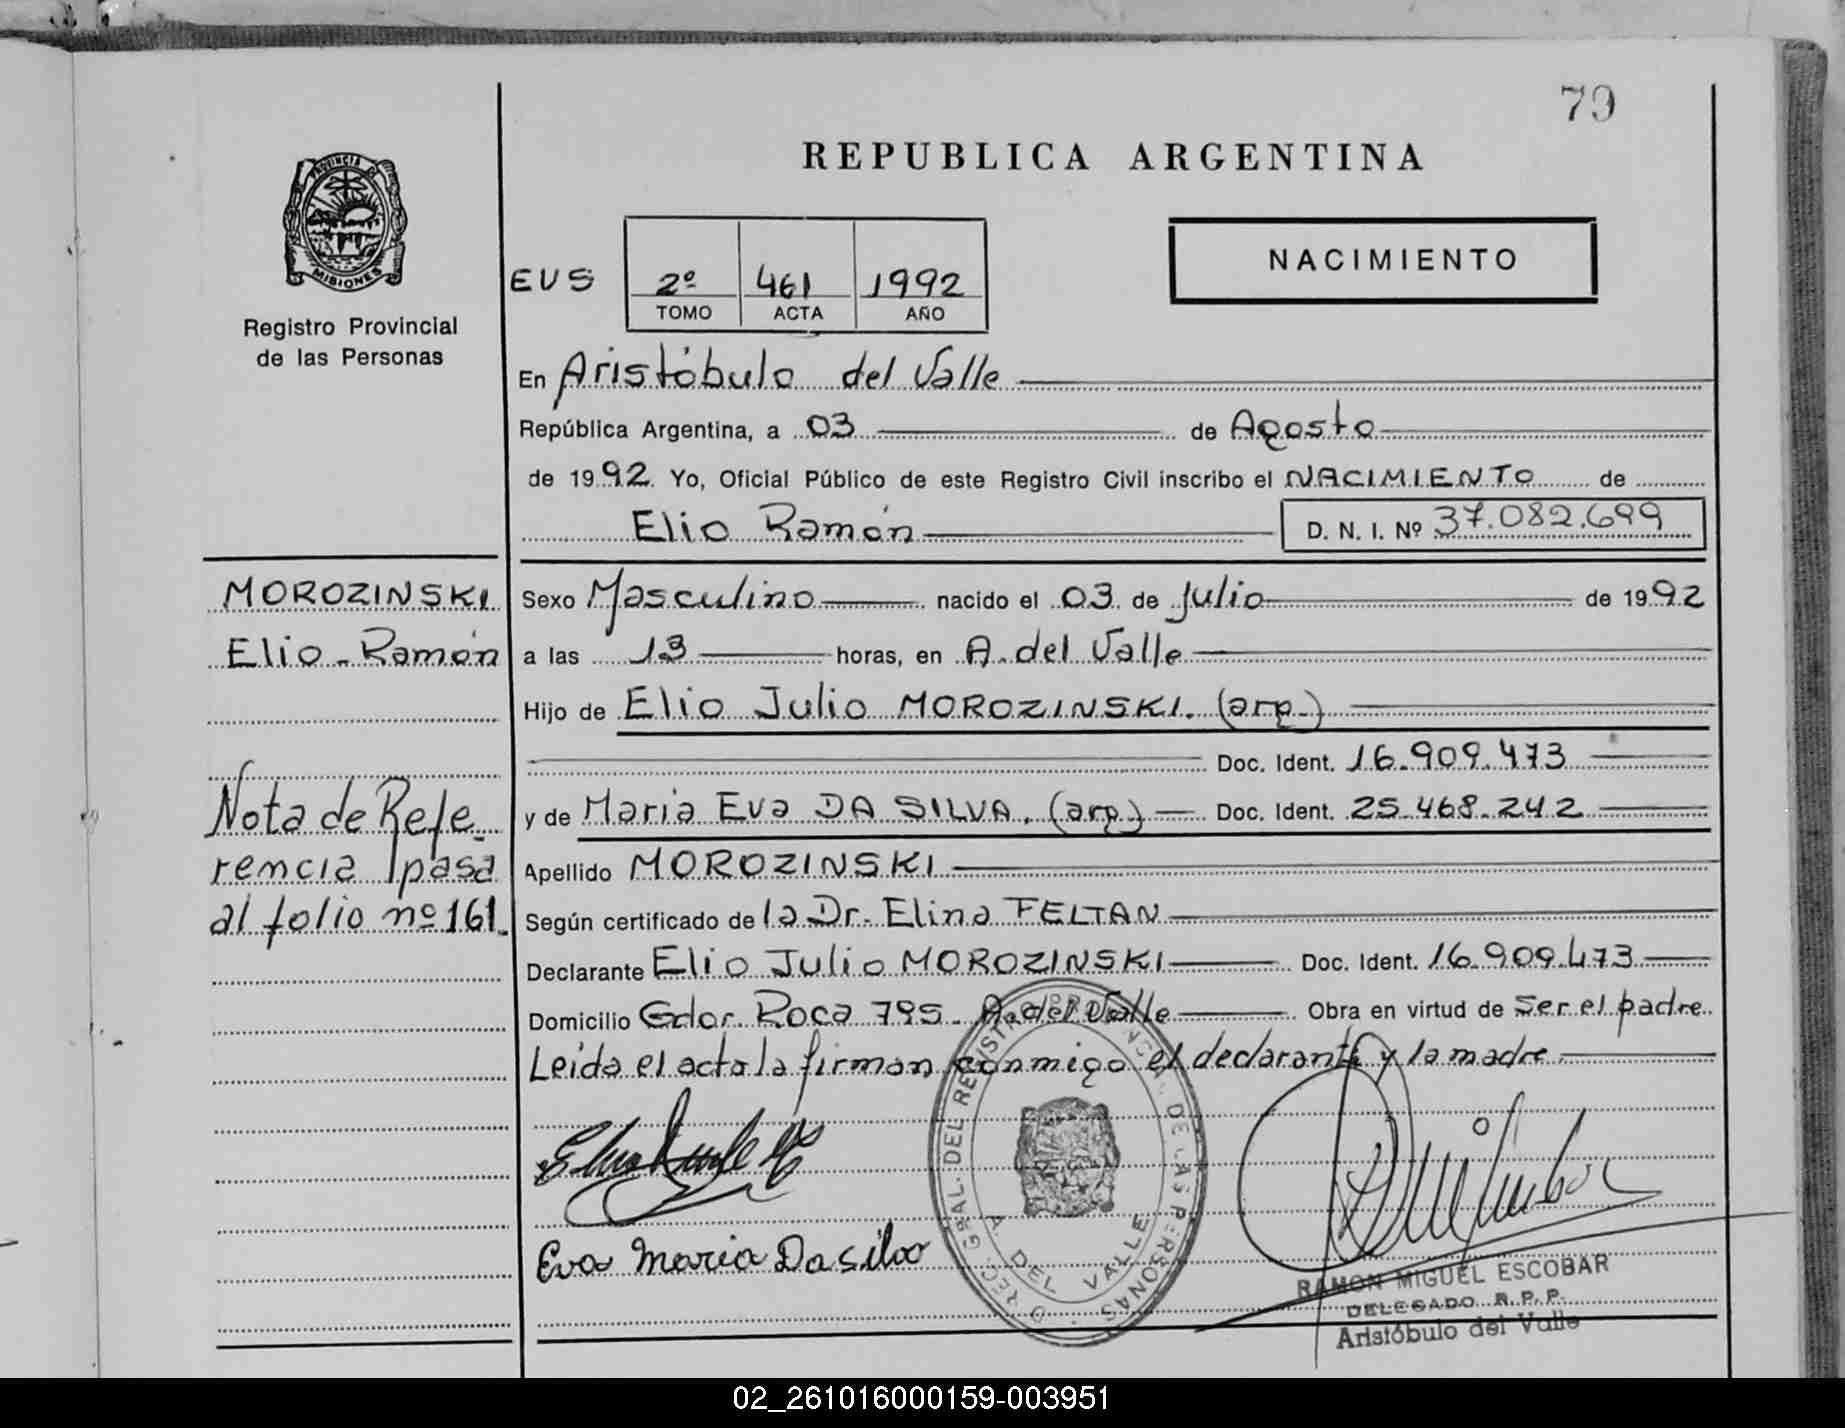 79
REPUBLICA ARGENTINA
PROVINCIA DE
MISIONES
Registro Provincial
de las Personas
EUS
2º 461 1992
TOMO ACTA AÑO
NACIMIENTO
En Aristóbulo del Valle
República Argentina, a 03 de Agosto
de 1992. Yo, Oficial Público de este Registro Civil inscribo el NACIMIENTO de
Elio Ramón D. N. I. Nº 37.082.699
MOROZINSKI
Elio - Ramón
Nota de Refe-
rencia pasa
al folio nº 161.
Sexo Masculino nacido el 03 de Julio de 1992
a las 13 horas, en A. del Valle
Hijo de Elio Julio MOROZINSKI. (arg.)
Doc. Ident. 16.909.473
y de Maria Eva DA SILVA. (arg.) Doc. Ident. 25.468.242
Apellido MOROZINSKI
Según certificado de la Dr. Elina FELTAN
Declarante Elio Julio MOROZINSKI Doc. Ident. 16.909.473
Domicilio Gdor. Roca 795. A. del Valle Obra en virtud de ser el padre.
Leída el acta la firman conmigo el declarante y la madre
Eva Maria Da silva
REGISTRO PROVINCIAL DE LAS PERSONAS
GRAL. DEL
A. DEL VALLE
RAMON MIGUEL ESCOBAR
DELEGADO R. P. P.
Aristóbulo del Valle
02_261016000159-003951